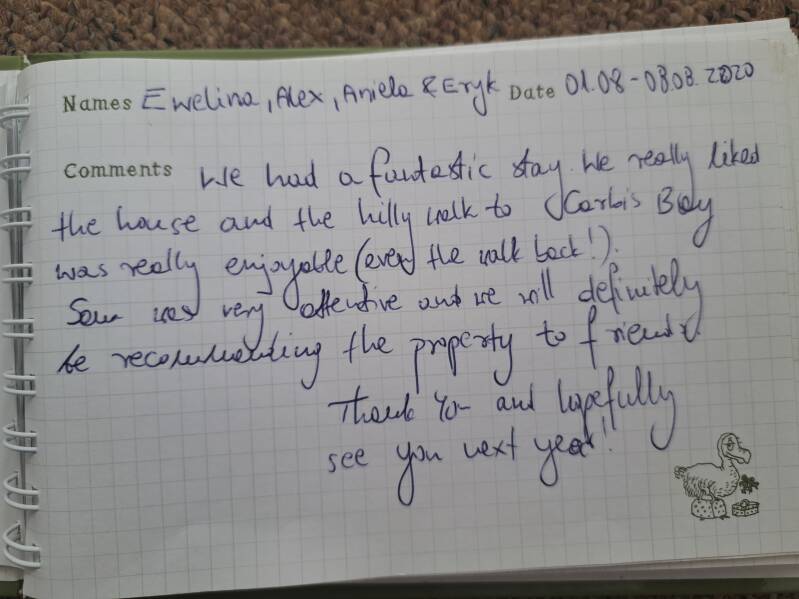 Names Ewelina, Alex, Aniela & Eryk Date 01.08 - 08.08.2020
Comments We had a fantastic stay. We really liked
the house and the hilly walk to Carbis Bay
was really enjoyable (even the walk back!).
Sam was very attentive and we will definitely
be recommending the property to friends.
Thank You and hopefully
see you next year!